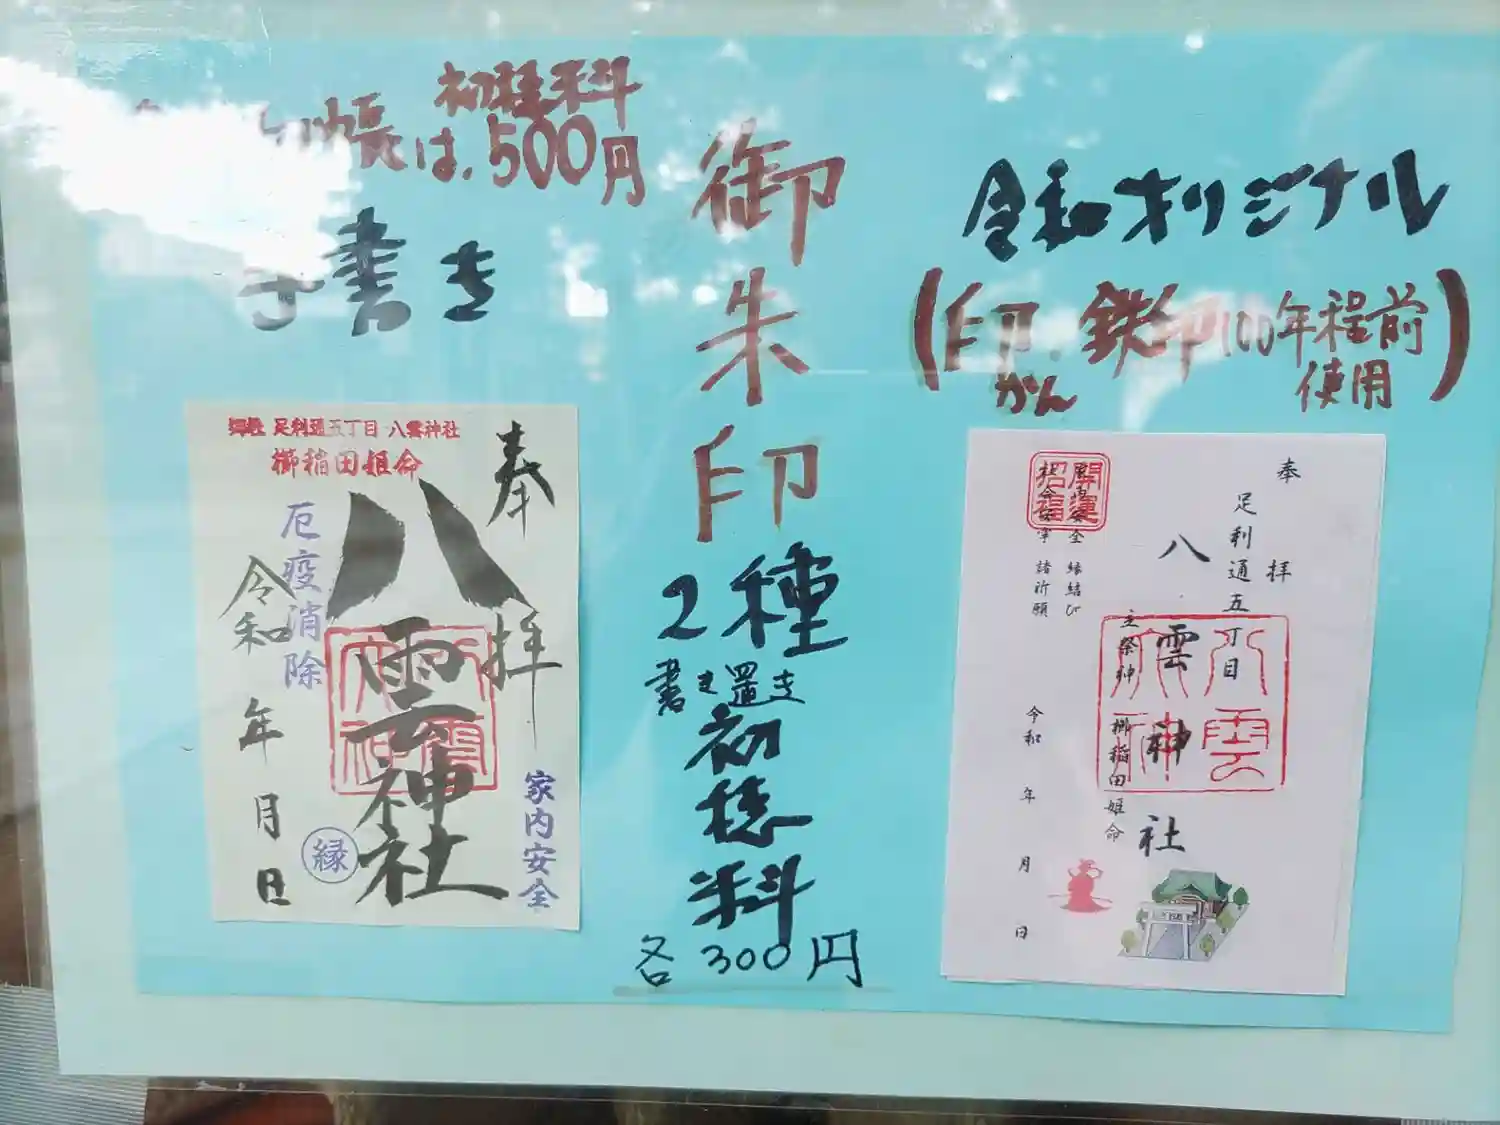 初穂料
帳は、500円
手書き
御朱印
2種
書き置き
初穂料
各300円
令和オリジナル
(印かん、鉄印100年程前使用)
足利通五丁目 八雲神社
櫛稲田姫命
奉拝
八雲神社
厄疫消除
令和 年 月 日
家内安全
縁
奉拝
足利通五丁目
八雲神社
主祭神 櫛稲田姫命
縁結び
諸祈願
開運
招福
令和 年 月 日